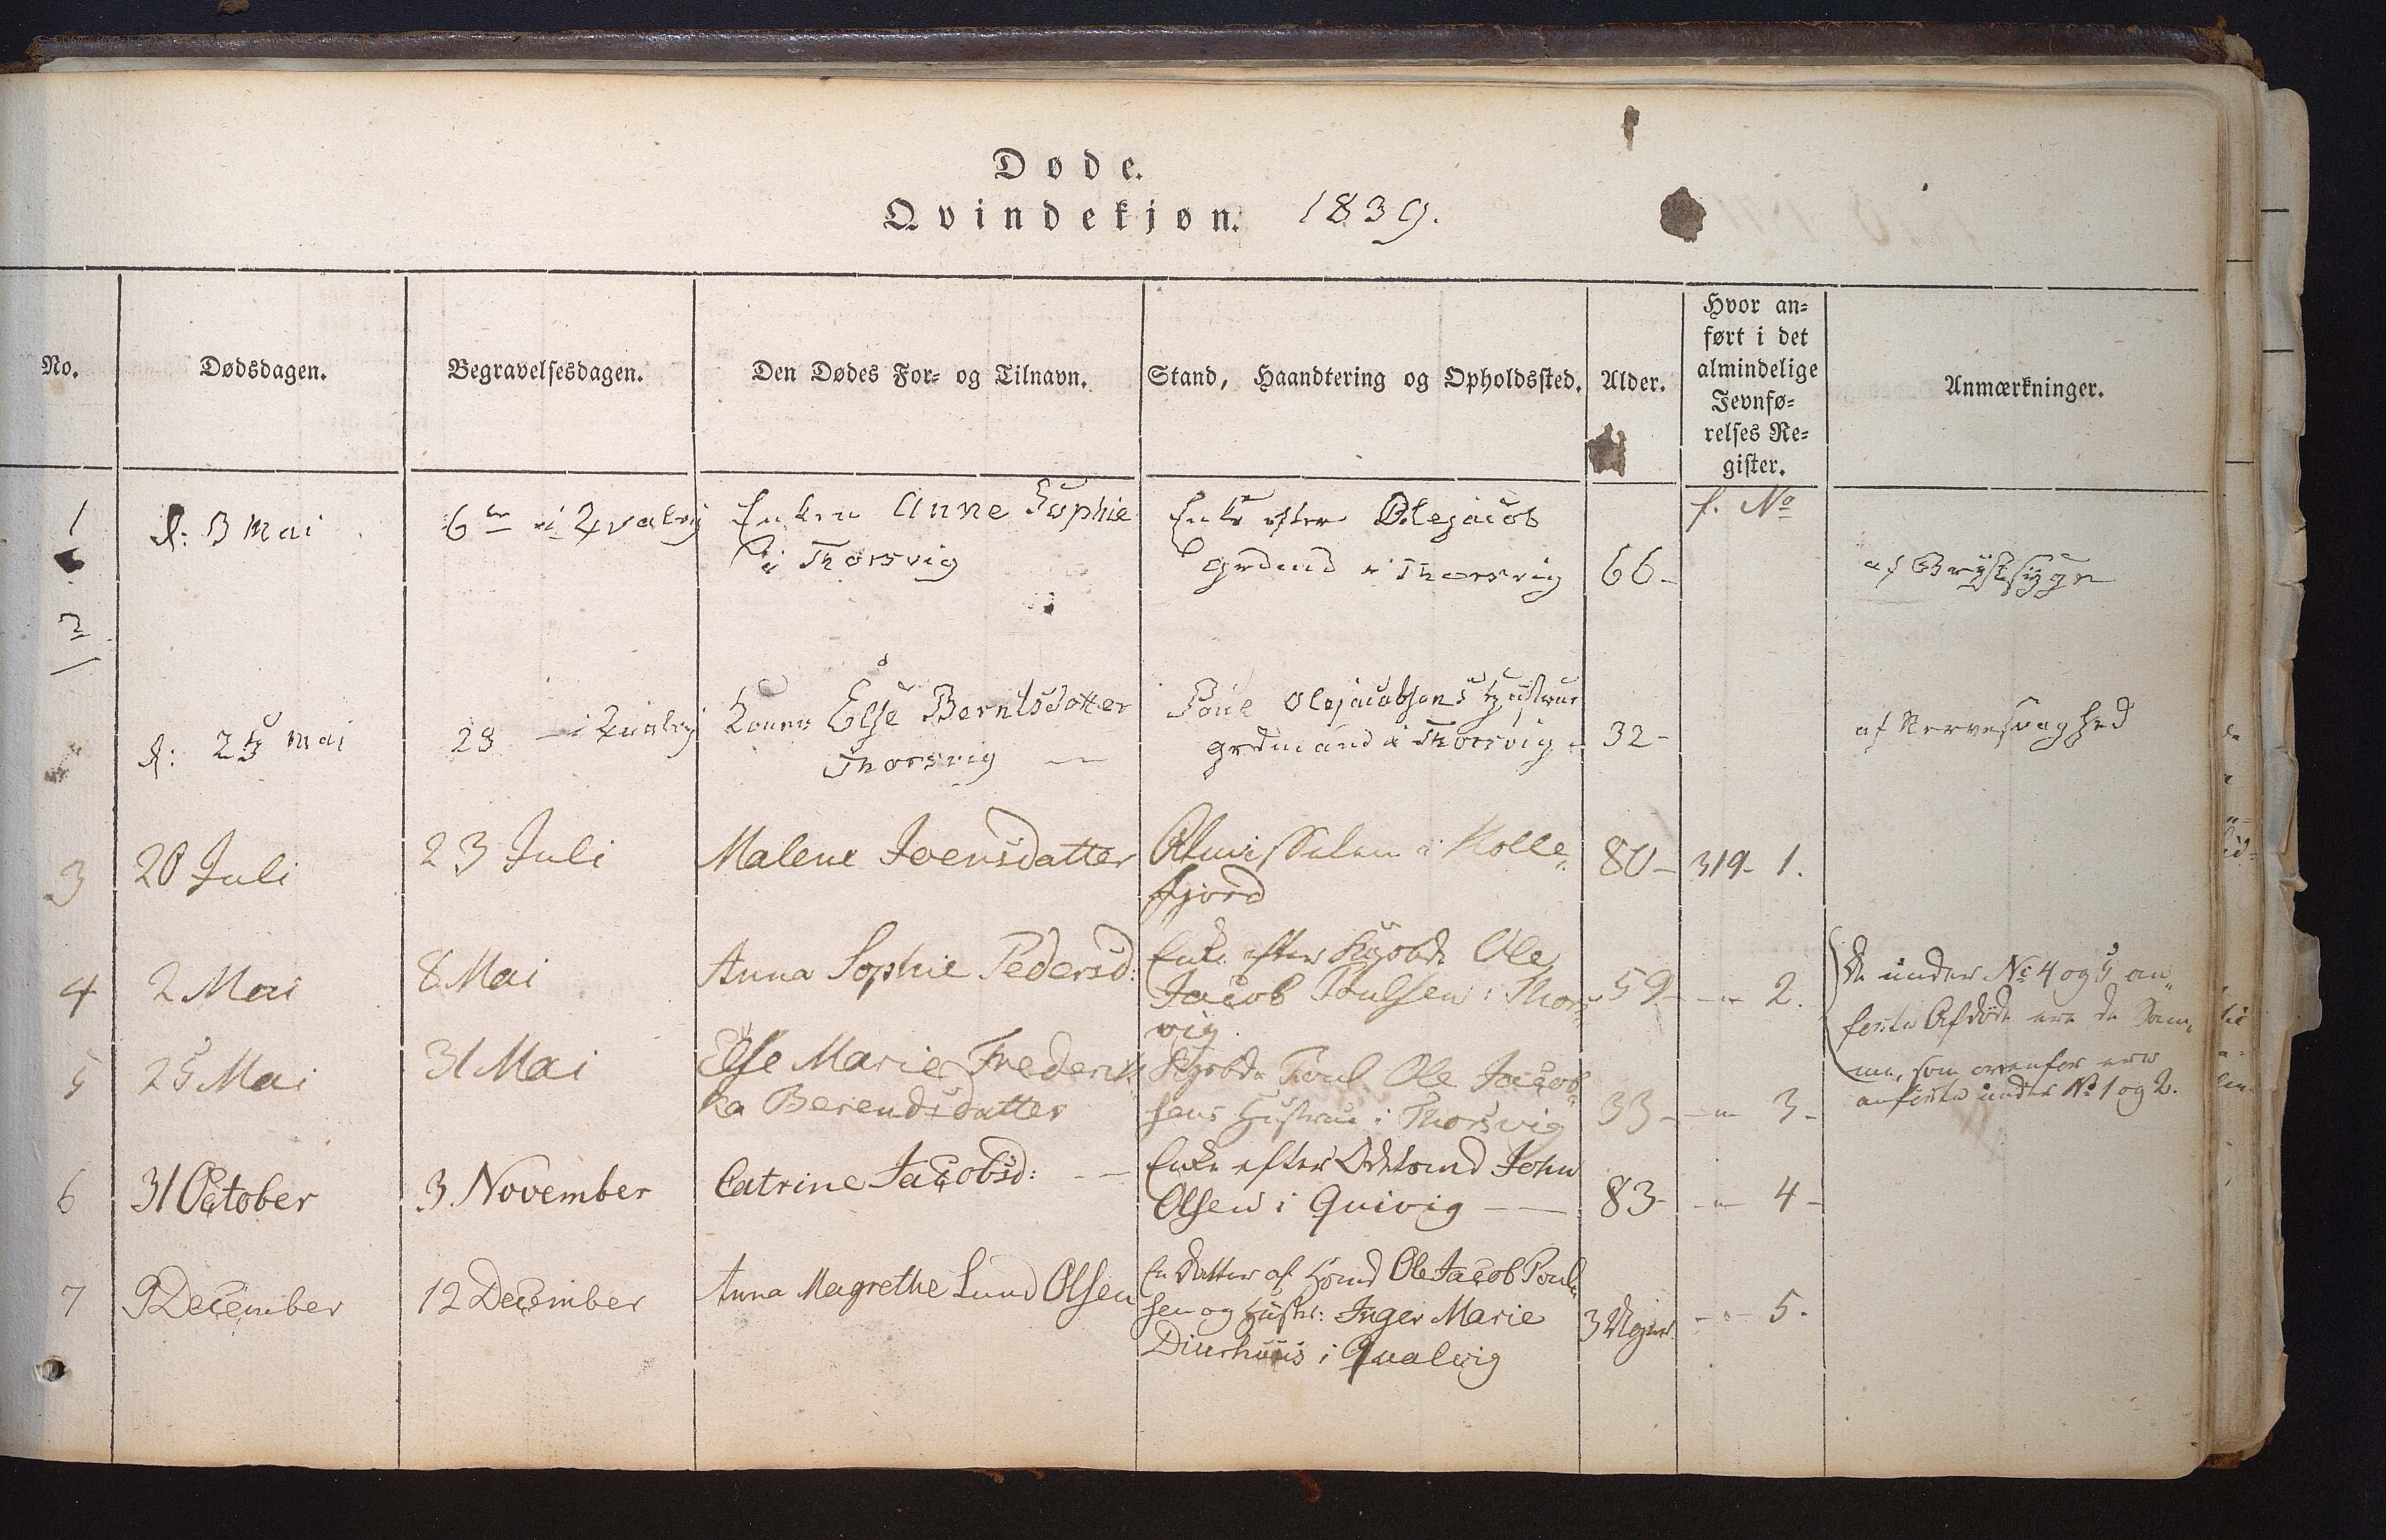 Døde.
Qvindekjøn. 1839.
No.
Dødsdagen.
Begravelsesdagen.
Den Dødes For- og Tilnavn.
Stand, Haandtering og Opholdssted.
Alder.
Hvor an-
ført i det
almindelige
Jevnfø-
relses Re-
gister.
Anmærkninger.
f. No
1
d: 3 Mai
6te i Qvalvig
Enken Anne Sophie
i Thorsvig
Enke efter Olejacob
i Thorsvig
66-
af Brystsyge
2
d: 25 Mai
28 - i Qvalvig
Konen Else Berntsdatter
Thorsvig -
Poul Olejacobsens Hustrue
i Thorsvig
32-
af Nervesvaghed
3
20 Juli
23 Juli
Malene Joensdatter
Almisselem i Kolle„
fjord
80-
319- 1.
4
2 Mai
8 Mai
Anna Sophie Pedersd:
Enke efter Ole
Jacob Poulsen i Thors„
vig.
59-
- " - 2.
De under No 4 og 5 an„
førte Afdøde ere de Sam„
me, som ovenfor ere
anførte under No 1 og 2.
5
25 Mai
31 Mai
Else Marie Frederik„
ka Berendsdatter
Poul Ole Jacob„
sens Hustrue i Thorsvig
33-
- " - 3-
6
31 October
3. November
Catrine Jacobsd: - -
Enke efter John
Olsen i Qvivig - -
83-
- " - 4-
7
9 December
12 December
Anna Magrethe Lund Olsen
En Datter af Ole Jacob Poul„
sen og Hustr: Inger Marie
Diurhuus i Qvalvig
3
- " - 5.